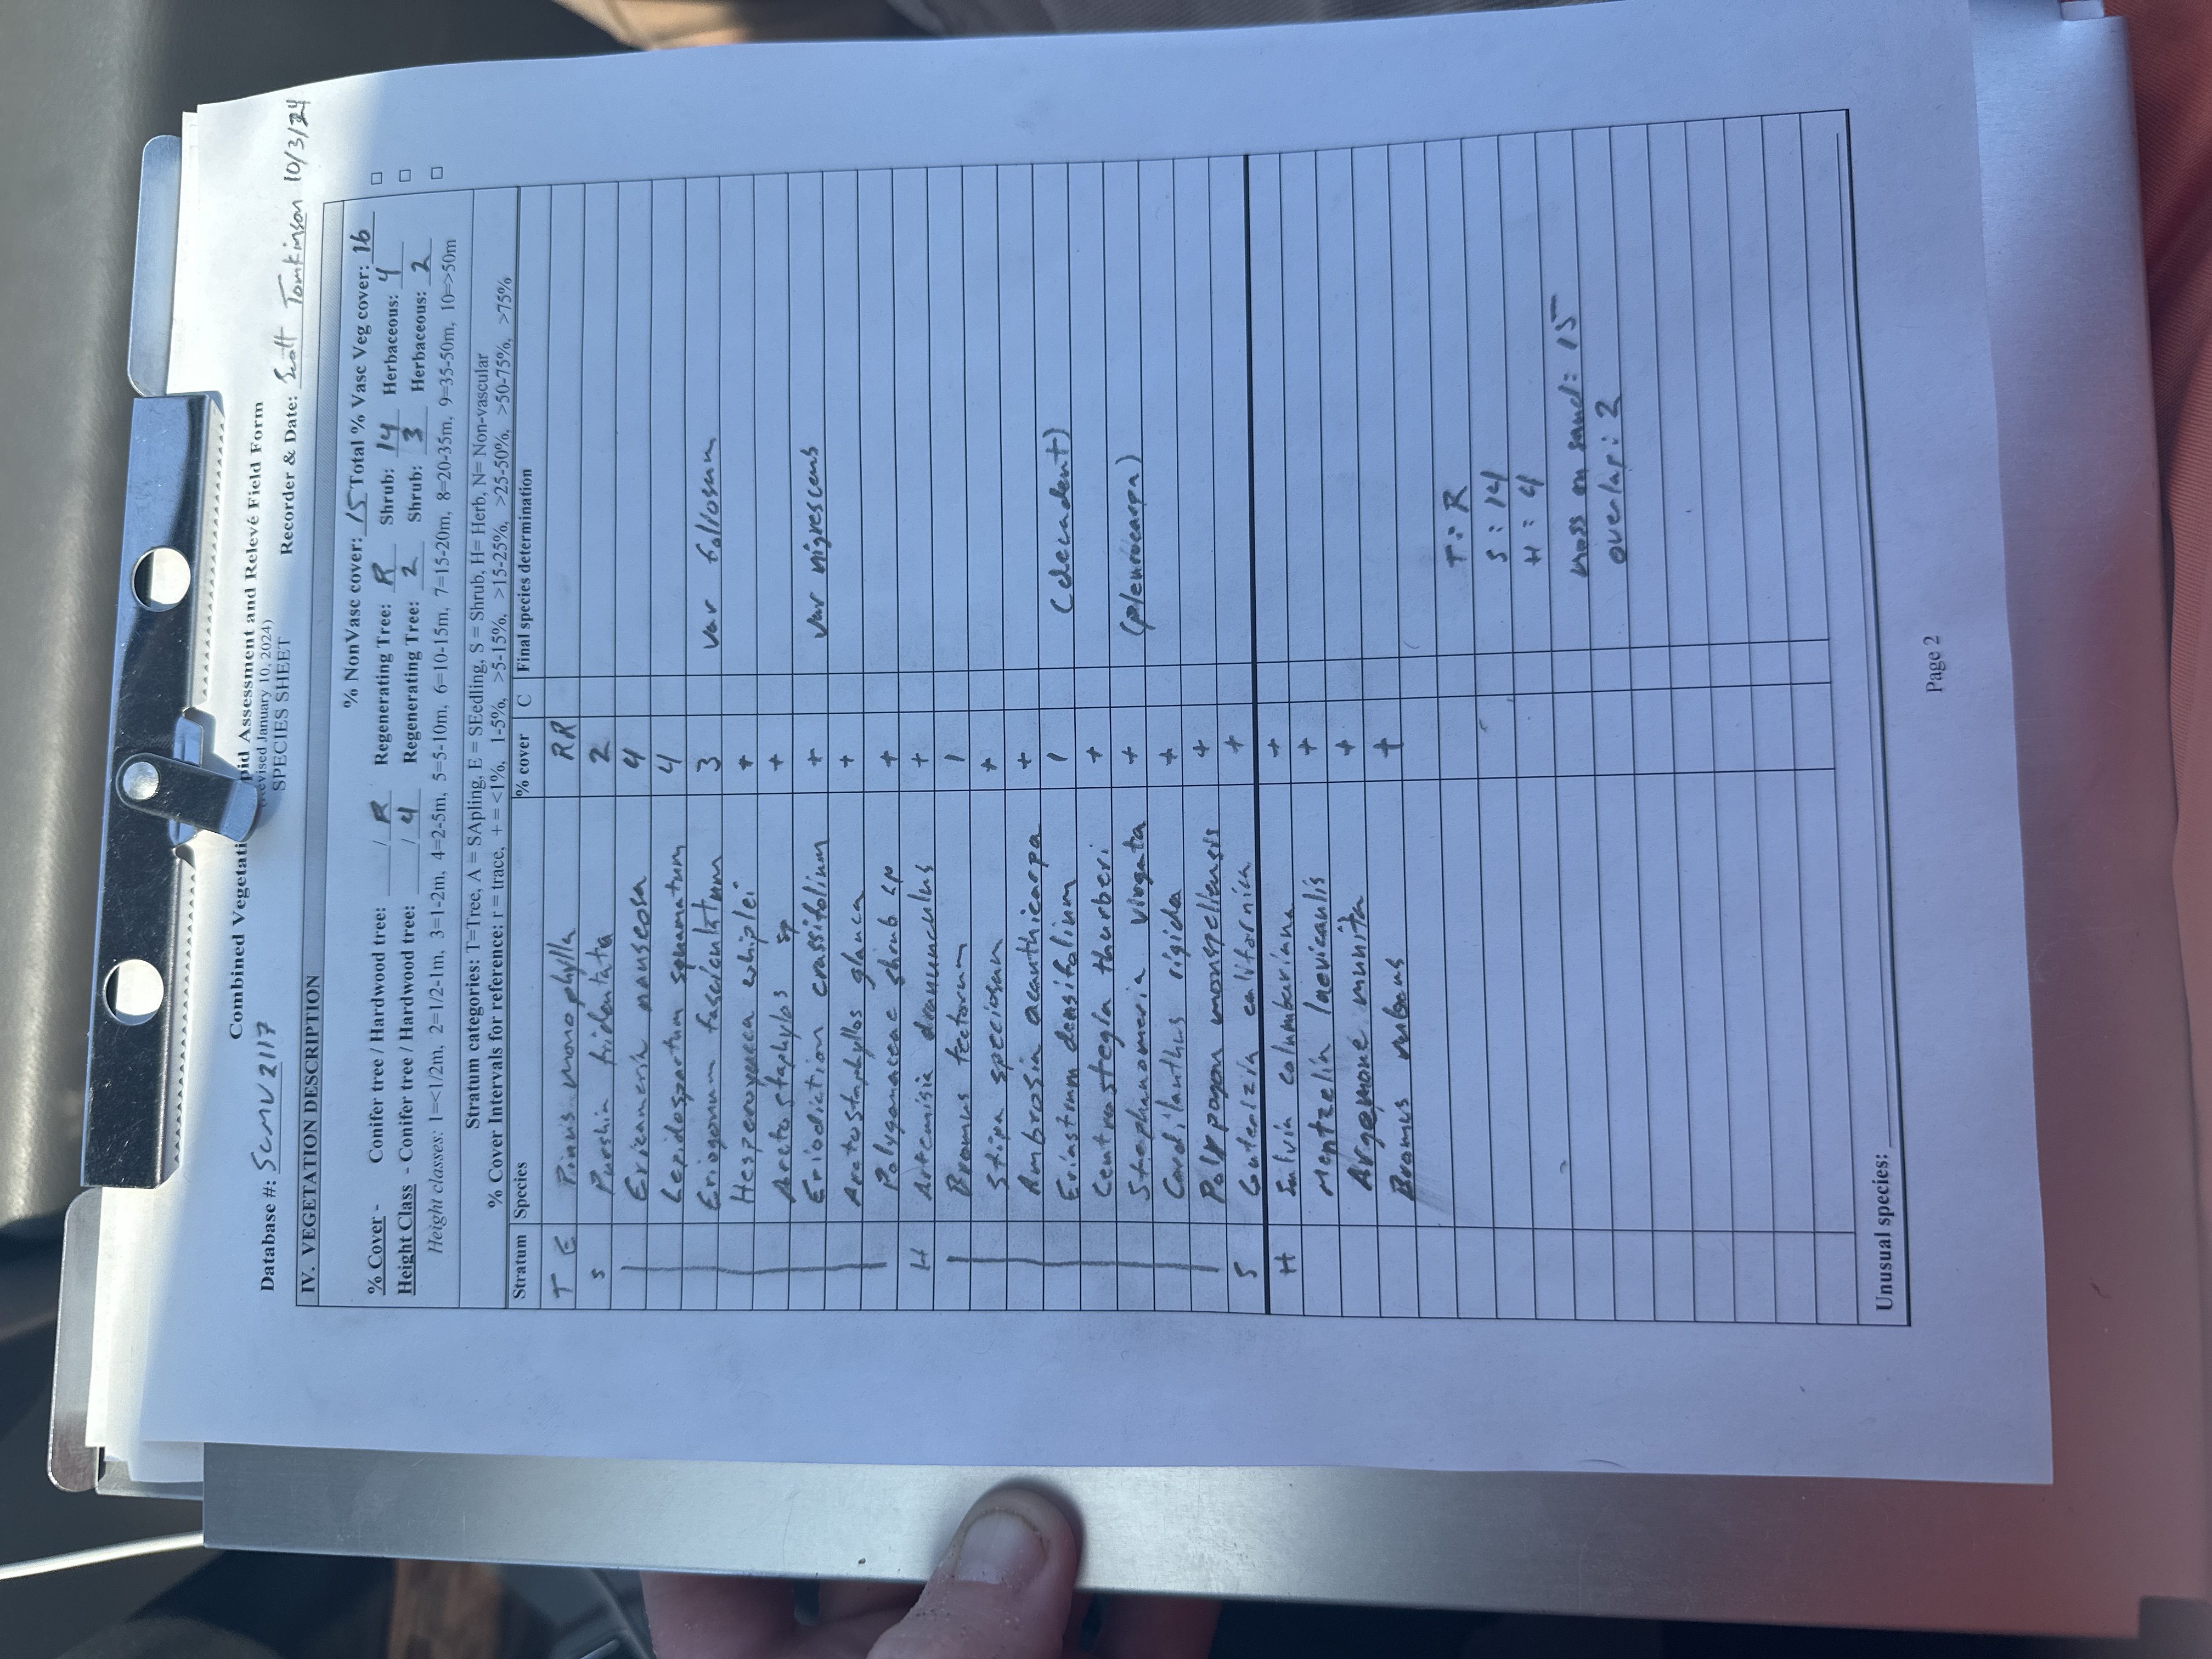 Combined Vegetati pid Assessment and Relevé Field Form
evised January 10, 2024)
SPECIES SHEET
Database #: SCMV2117 Recorder & Date: Scott Tomkinson 10/3/24
IV. VEGETATION DESCRIPTION
% NonVasc cover: 15 Total % Vasc Veg cover: 16
% Cover - Conifer tree / Hardwood tree: / R Regenerating Tree: R Shrub: 14 Herbaceous: 4
Height Class - Conifer tree / Hardwood tree: / 4 Regenerating Tree: 2 Shrub: 3 Herbaceous: 2
Height classes: 1=<1/2m, 2=1/2-1m, 3=1-2m, 4=2-5m, 5=5-10m, 6=10-15m, 7=15-20m, 8=20-35m, 9=35-50m, 10=>50m
Stratum categories: T=Tree, A = SApling, E = SEedling, S = Shrub, H= Herb, N= Non-vascular
% Cover Intervals for reference: r = trace, + = <1%, 1-5%, >5-15%, >15-25%, >25-50%, >50-75%, >75%
Stratum Species % cover C Final species determination
T E Pinus monophylla RR
S Purshia tridentata 2
Ericameria nauseosa 4
Lepidospartum squamatum 4
Eriogonum fasciculatum 3 var foliosum
Hesperoyucca whiplei +
Arctostaphylos sp +
Eriodiction crassifolium + var nigrescens
Arctostaphyllos glauca +
Polygonaceae shrub sp +
H Artemisia dracunculus +
Bromus tectorum 1
Stipa speciosa +
Ambrosia acanthicarpa +
Eriastrum densifolium 1 (decadent)
Centrostegia thurberi +
Stephanomeria virgata + (pleurocarpa)
Cordilanthus rigida +
Polypogon monspeliensis +
S Guterizia californica +
H Salvia columbariana +
Mentzelia laevicaulis +
Argemone munita +
Bromus rubens +
T: R
S: 14
H: 4
moss on sand: 15
overlap: 2
Unusual species:
Page 2